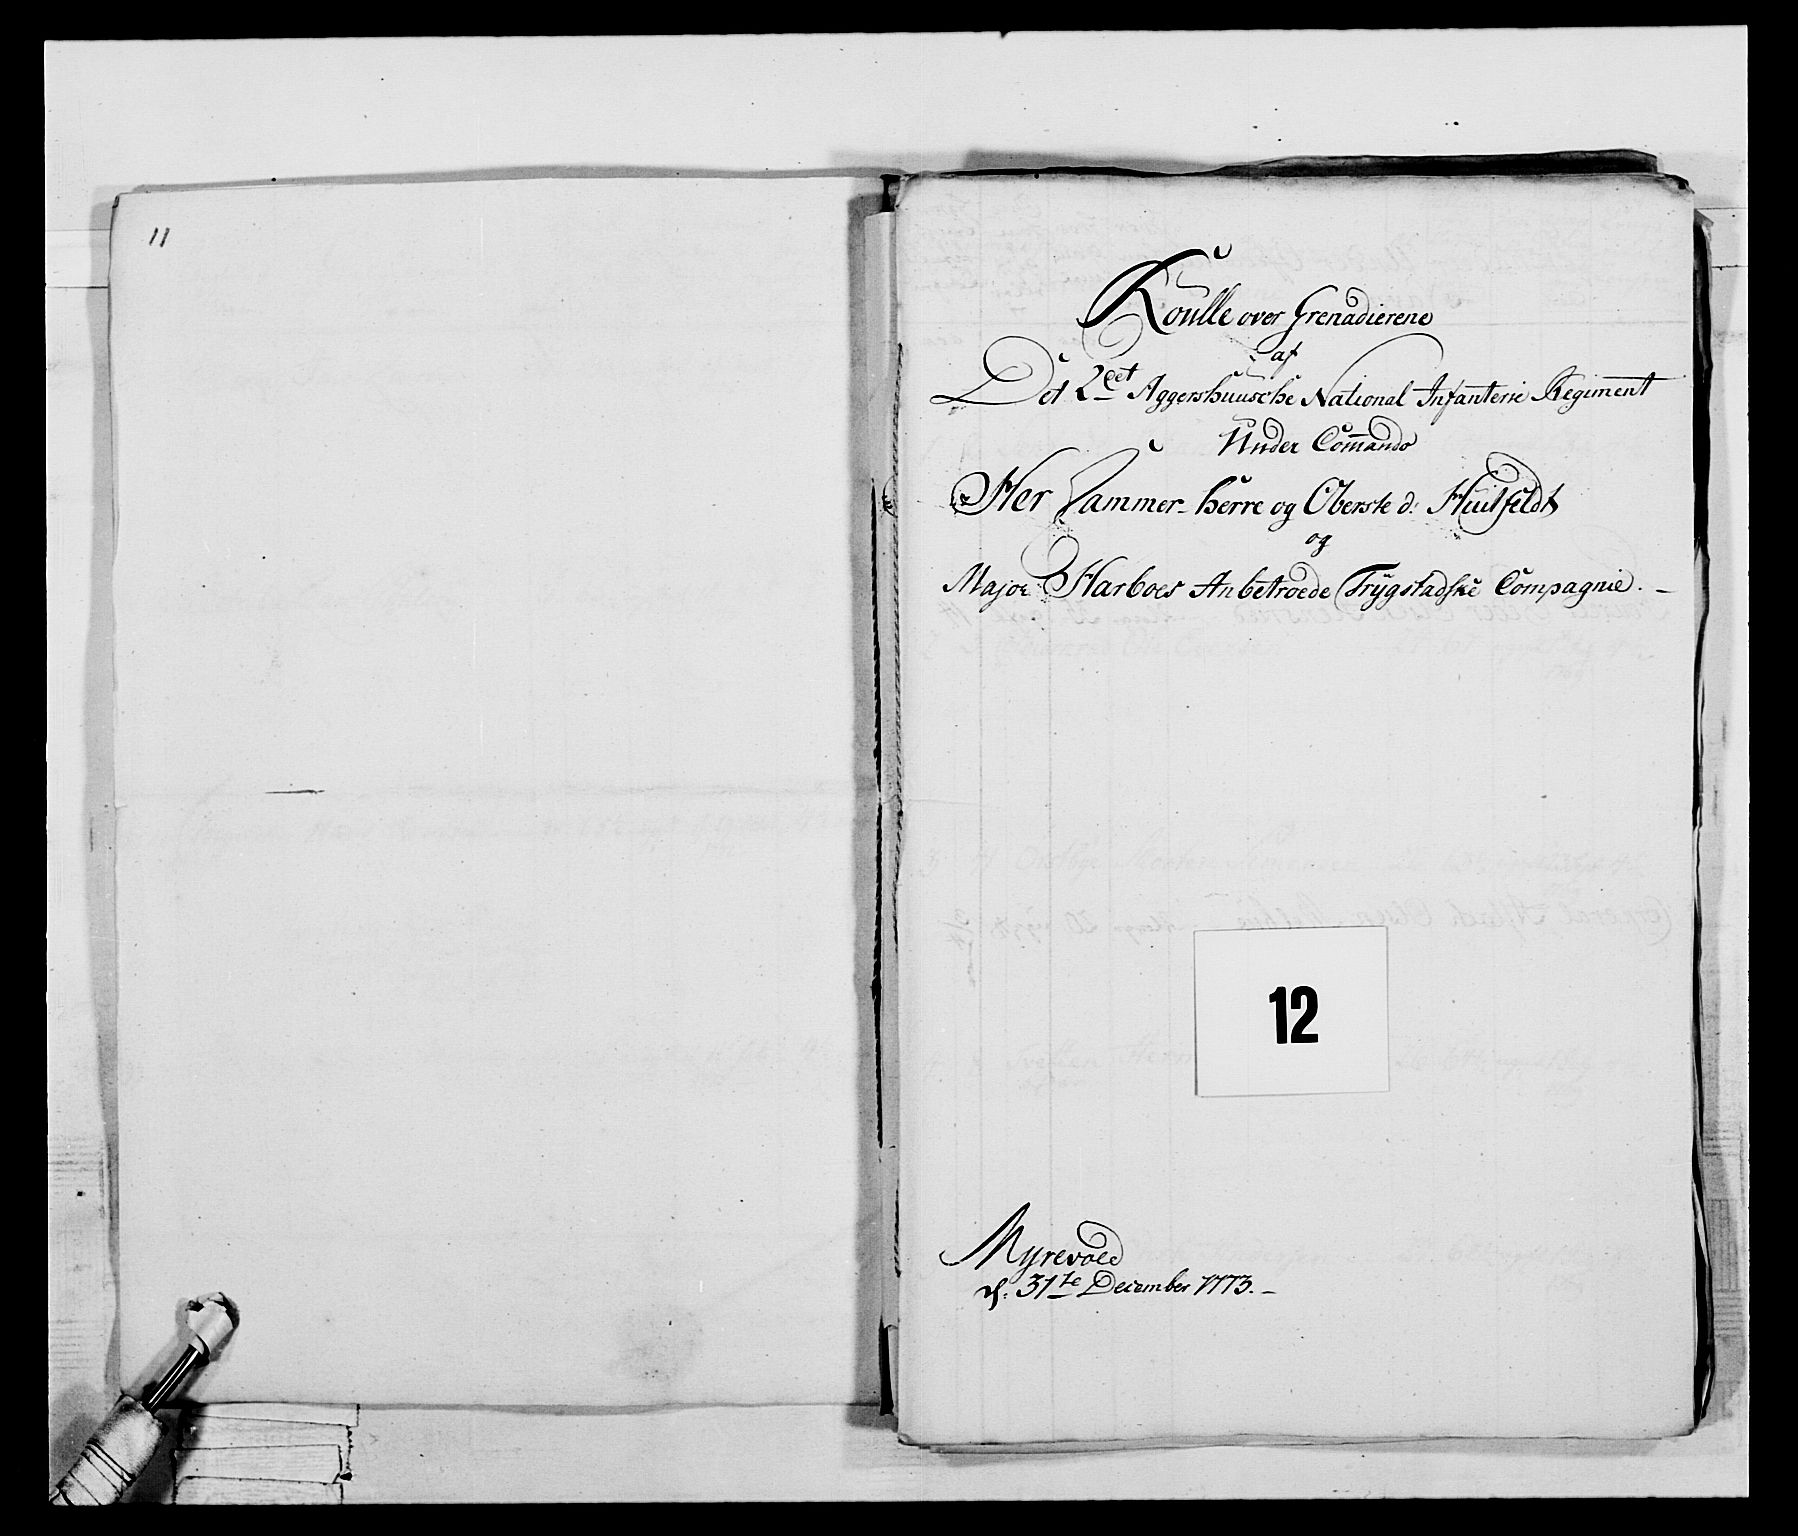 11
Roulle over Grenadierene
af
Det 2det Aggershuusche National Infanterie Regiment
Under Commando
Her Cammer-herre og Oberste d: Huitfeldt
og
Major Harboes Anbetroede Trygstadske Compagnie. -
12
Myrevold
d: 31te December 1773. -